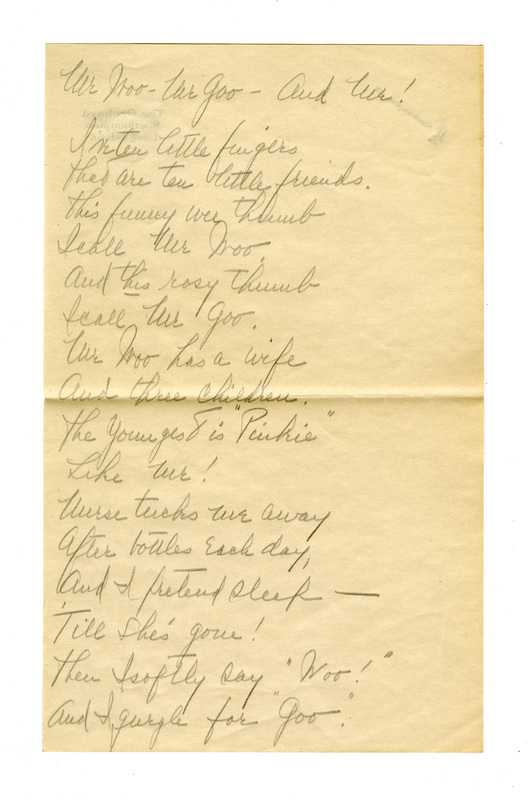 Mr Woo - Mr Goo - And Me!
I've ten little fingers
That are ten little friends.
This funny wee thumb
I call Mr Woo.
And this rosy thumb
I call Mr Goo.
Mr Woo has a wife
And three children.
The Youngest is "Pinkie"
Like Me!
Nurse tucks me away
After bottles Each day,
And I pretend sleep —
'Till She's gone!
Then I softly say "Woo!"
And I gurgle for "Goo".